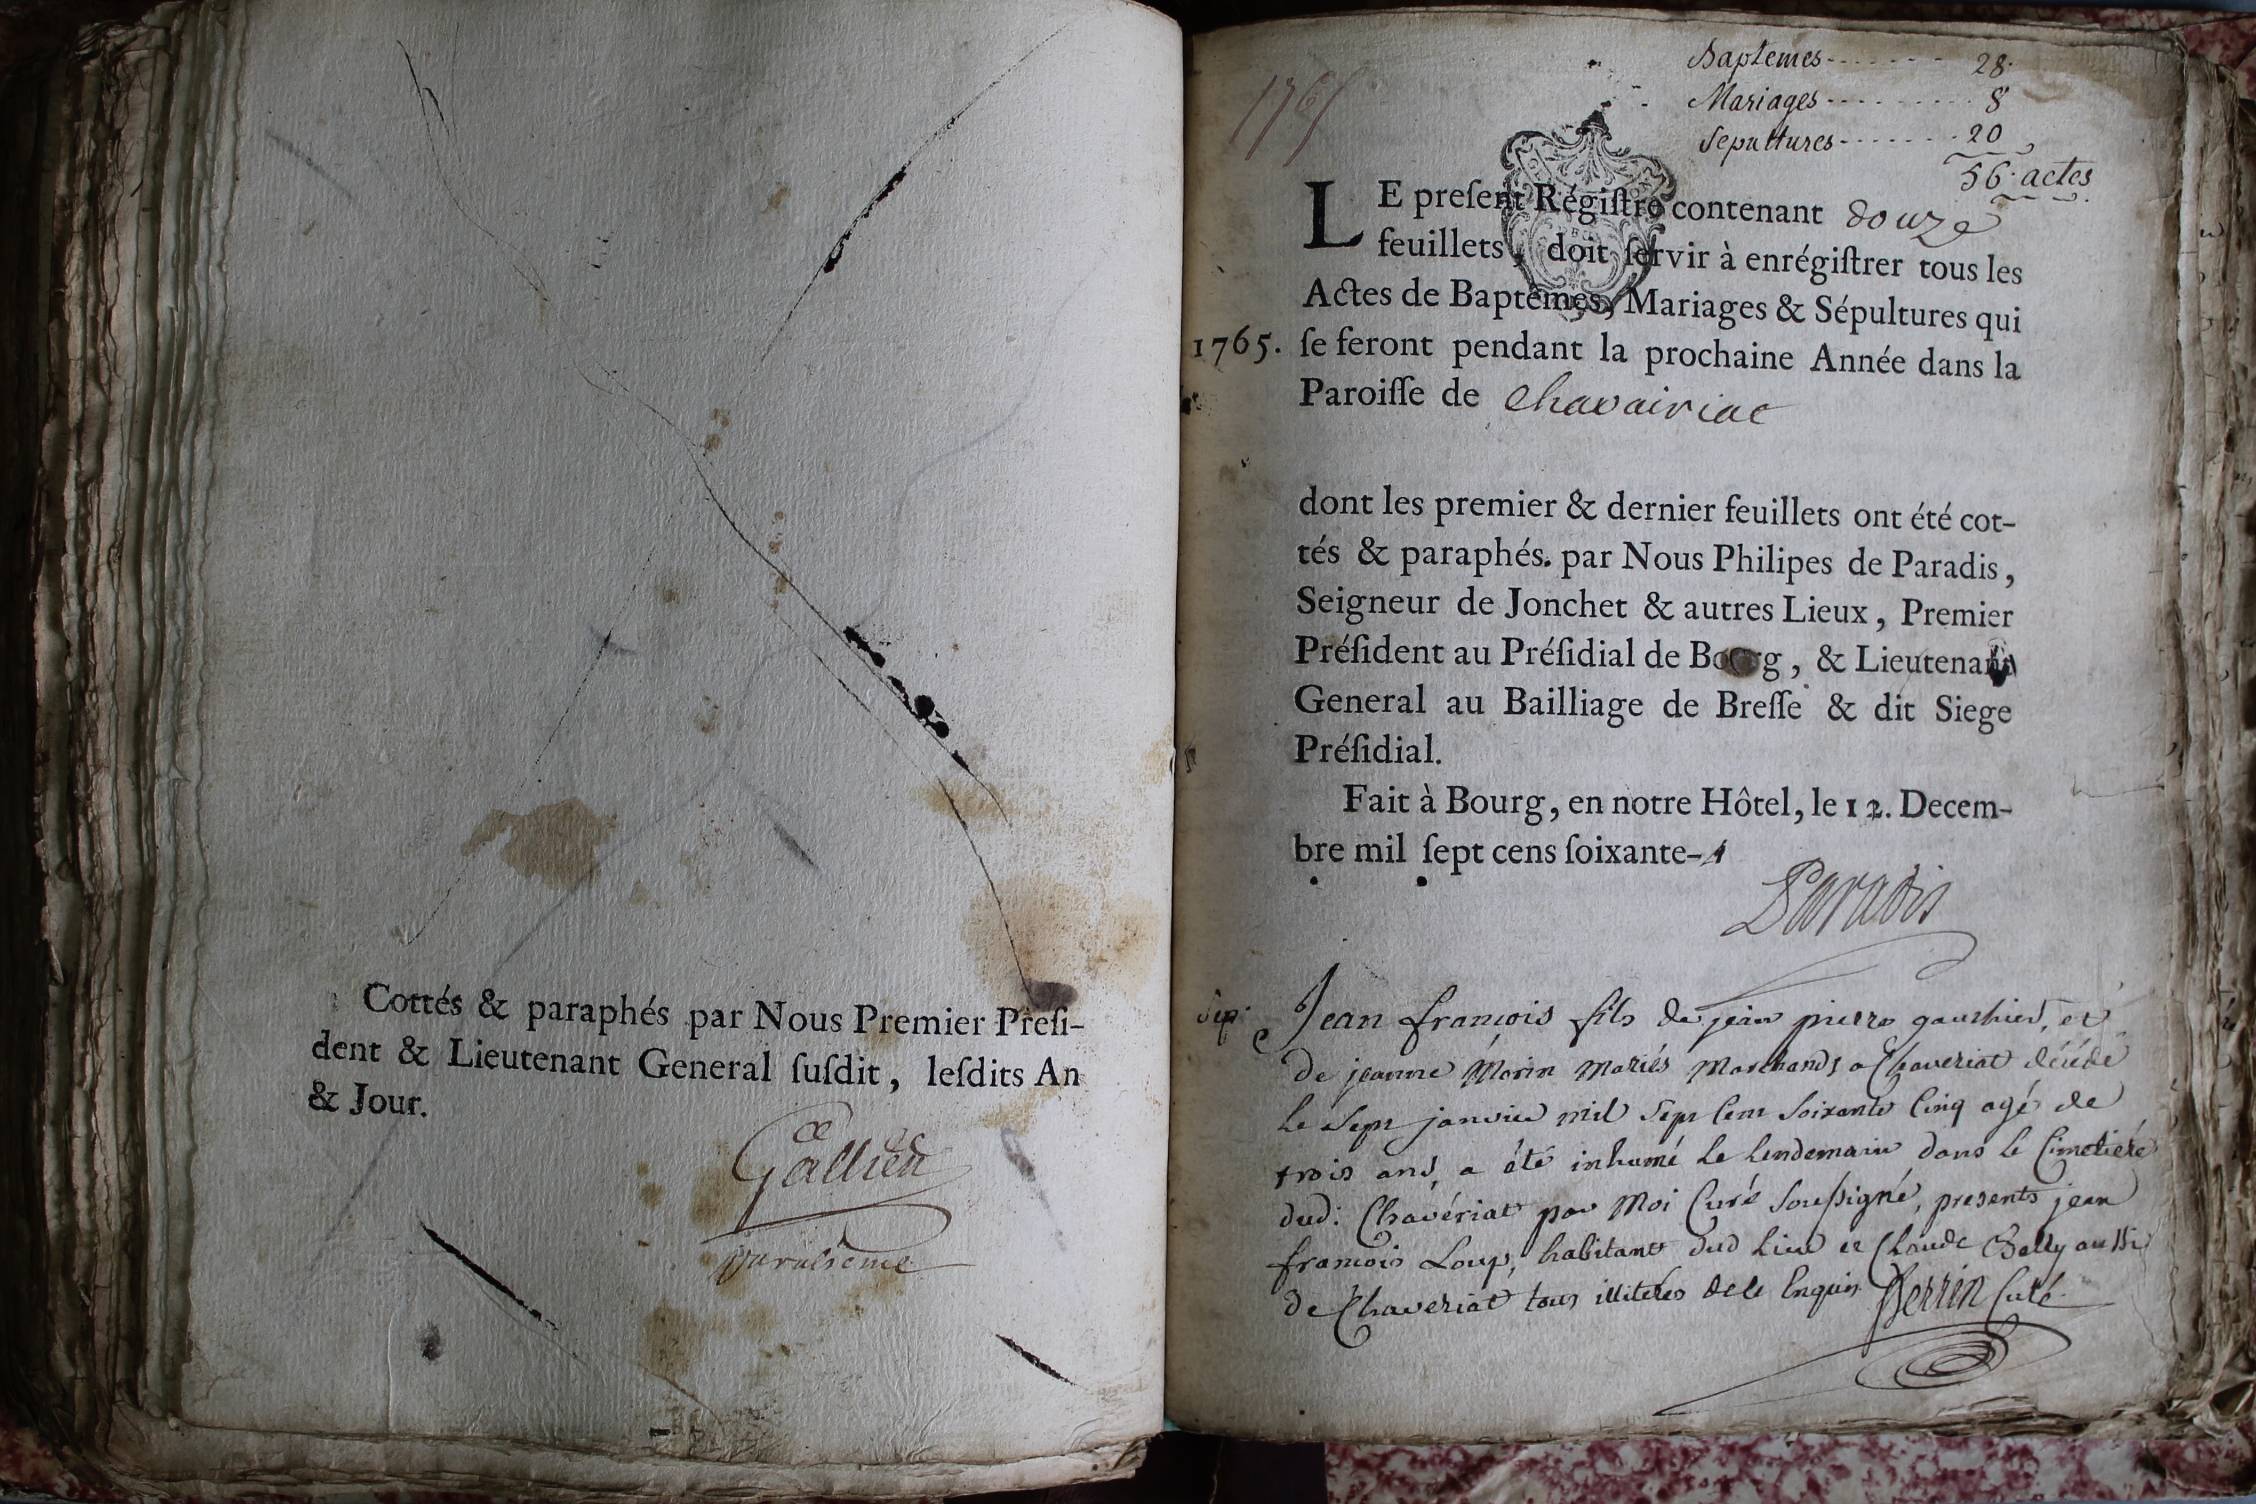 Cottés & paraphés par Nous Premier Preſi-
dent & Lieutenant General ſuſdit, leſdits An
& Jour.
1765
Baptemes - - - - - - - 28.
Mariages - - - - - - - - - 8
Sepultures - - - - - - - 20
56. actes
LE preſent Régiſtre contenant douze
feuillets, doit ſervir à enrégiſtrer tous les
Actes de Baptêmes, Mariages & Sépultures qui
1765. ſe feront pendant la prochaine Année dans la
Paroiſſe de Chavairiac
dont les premier & dernier feuillets ont été cot-
tés & paraphés. par Nous Philipes de Paradis,
Seigneur de Jonchet & autres Lieux, Premier
Préſident au Préſidial de Bourg, & Lieutenant
General au Bailliage de Breſſe & dit Siege
Préſidial.
Fait à Bourg, en notre Hôtel, le 12. Decem-
bre mil ſept cens ſoixante-4
Paradis
Sep. Jean françois fils de jean pierre gauthier, et
de jeanne Morin mariés Marchands a Chaveriat décédé
le sept janvier mil sept cent soixante Cinq agé de
trois ans, a été inhumé le lendemain dans le Cimetiére
dud: Chavériat par Moi Curé Soussigné, presents jean
françois Loup, habitant dud lieu et Claude Belly aussi
de Chaveriat tous illiterés de ce Enquis. Perrin Curé.